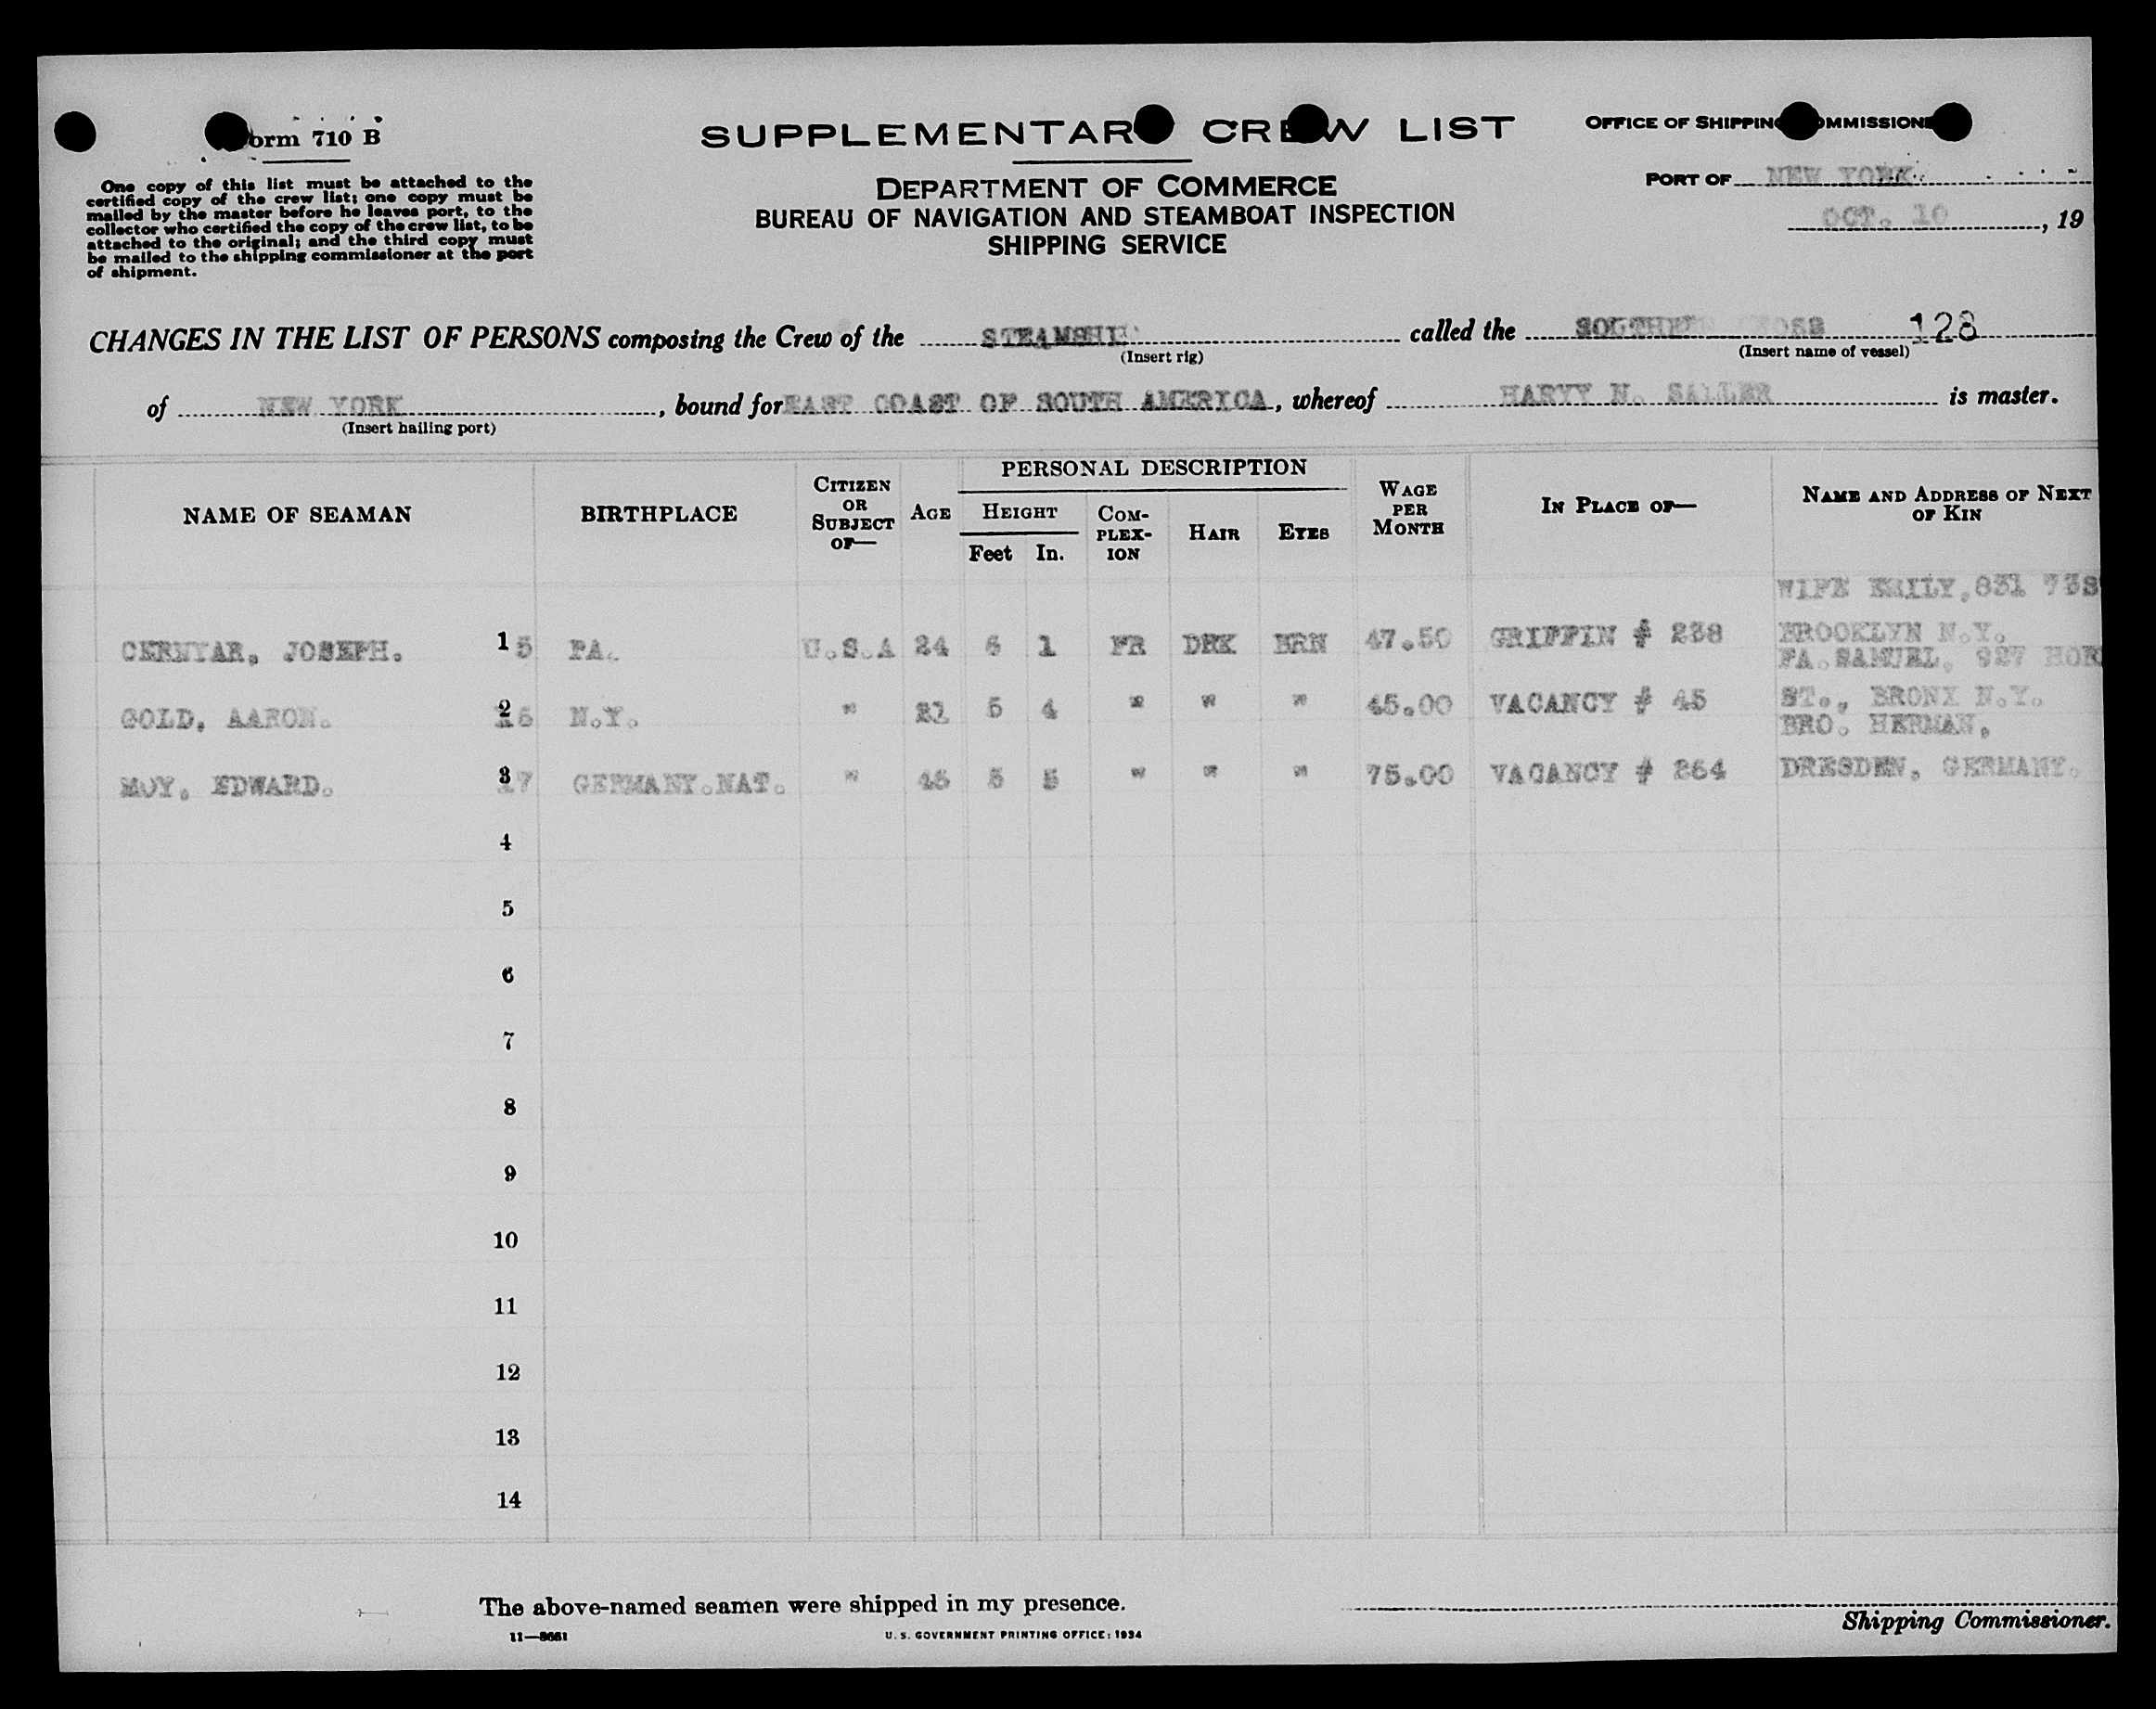 Form 710 B
One copy of this list must be attached to the
certified copy of the crew list; one copy must be
mailed by the master before he leaves port, to the
collector who certified the copy of the crew list, to be
attached to the original; and the third copy must
be mailed to the shipping commissioner at the port
of shipment.
SUPPLEMENTARY CREW LIST
DEPARTMENT OF COMMERCE
BUREAU OF NAVIGATION AND STEAMBOAT INSPECTION
SHIPPING SERVICE
OFFICE OF SHIPPING COMMISSIONER
PORT OF NEW YORK
OCT. 10, 19
CHANGES IN THE LIST OF PERSONS composing the Crew of the STEAMSHIP called the SOUTHERN CROSS 128
(Insert rig) (Insert name of vessel)
of NEW YORK, bound for EAST COAST OF SOUTH AMERICA, whereof HARVY N. SALLER is master.
(Insert hailing port)
NAME OF SEAMAN BIRTHPLACE CITIZEN OR SUBJECT OF— AGE PERSONAL DESCRIPTION HEIGHT Feet In. COMPLEXION HAIR EYES WAGE PER MONTH IN PLACE OF— NAME AND ADDRESS OF NEXT OF KIN
WIFE EMILY, 831 738
CERNYAR, JOSEPH. 1 5 PA. U.S.A 24 6 1 FR DRK BRN 47.50 GRIFFIN # 238 BROOKLYN N.Y.
FA. SAMUEL, 927
GOLD, AARON. 2 16 N.Y. " 21 5 4 " " " 45.00 VACANCY # 45 ST., BRONX N.Y.
BRO. HERMAN,
MOY, EDWARD. 3 17 GERMANY.NAT. " 45 5 5 " " " 75.00 VACANCY # 264 DRESDEN, GERMANY.
4
5
6
7
8
9
10
11
12
13
14
The above-named seamen were shipped in my presence.
Shipping Commissioner.
11—8661 U. S. GOVERNMENT PRINTING OFFICE: 1934